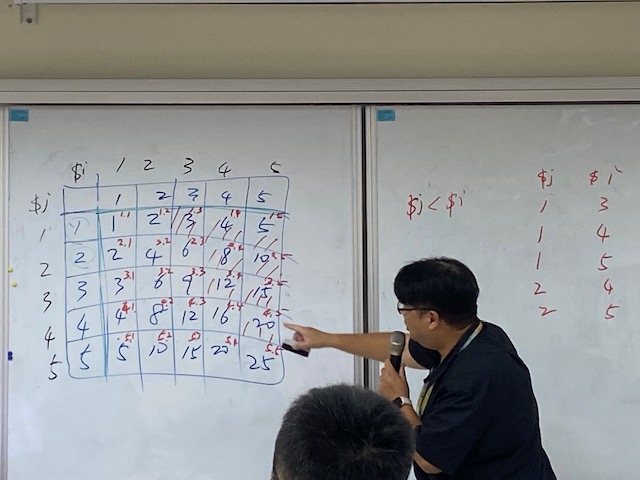 $i 1 2 3 4 5
$j
1 2 3 4 5
1 1 1 1,1 2 1,2 3 1,3 4 1,4 5 1,5
2 2 2 2,1 4 2,2 6 2,3 8 2,4 10 2,5
3 3 3 3,1 6 3,2 9 3,3 12 3,4 15 3,5
4 4 4 4,1 8 4,2 12 4,3 16 4,4 20 4,5
5 5 5 5,1 10 5,2 15 20 5,4 25 5,5
$j<$i
$j $i
1 3
1 4
1 5
2 4
2 5